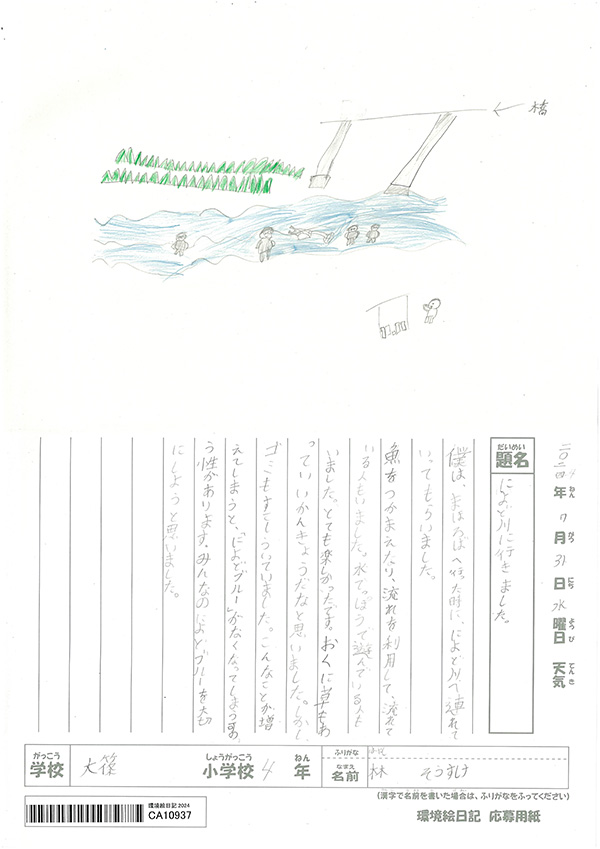 橋
二〇二四年ねん 7月がつ 31日にち 水曜日ようび 天気てんき
だいめい
題名
によど川に行きました。
僕は、まほろばへ行った時に、によど川へ連れて
いってもらいました。
魚をつかまえたり、流れを利用して、流れて
いる人もいました。水でっぽうで遊んでいる人も
いました。とても楽しかったです。おくに草もあ
っていいかんきょうだなと思いました。しかし
ゴミもすこしういていました。こんなことが増
えてしまうと、「によどブルー」がなくなってしまうかの
う性があります。みんなのによどブルーを大切
にしようと思いました。
がっこう
学校
大篠
しょうがっこう
小学校
4
ねん
年
ふりがな
なまえ
名前
林 そうすけ
(漢字で名前を書いた場合は、ふりがなをふってください)
環境絵日記 2024
CA10937
環境絵日記 応募用紙